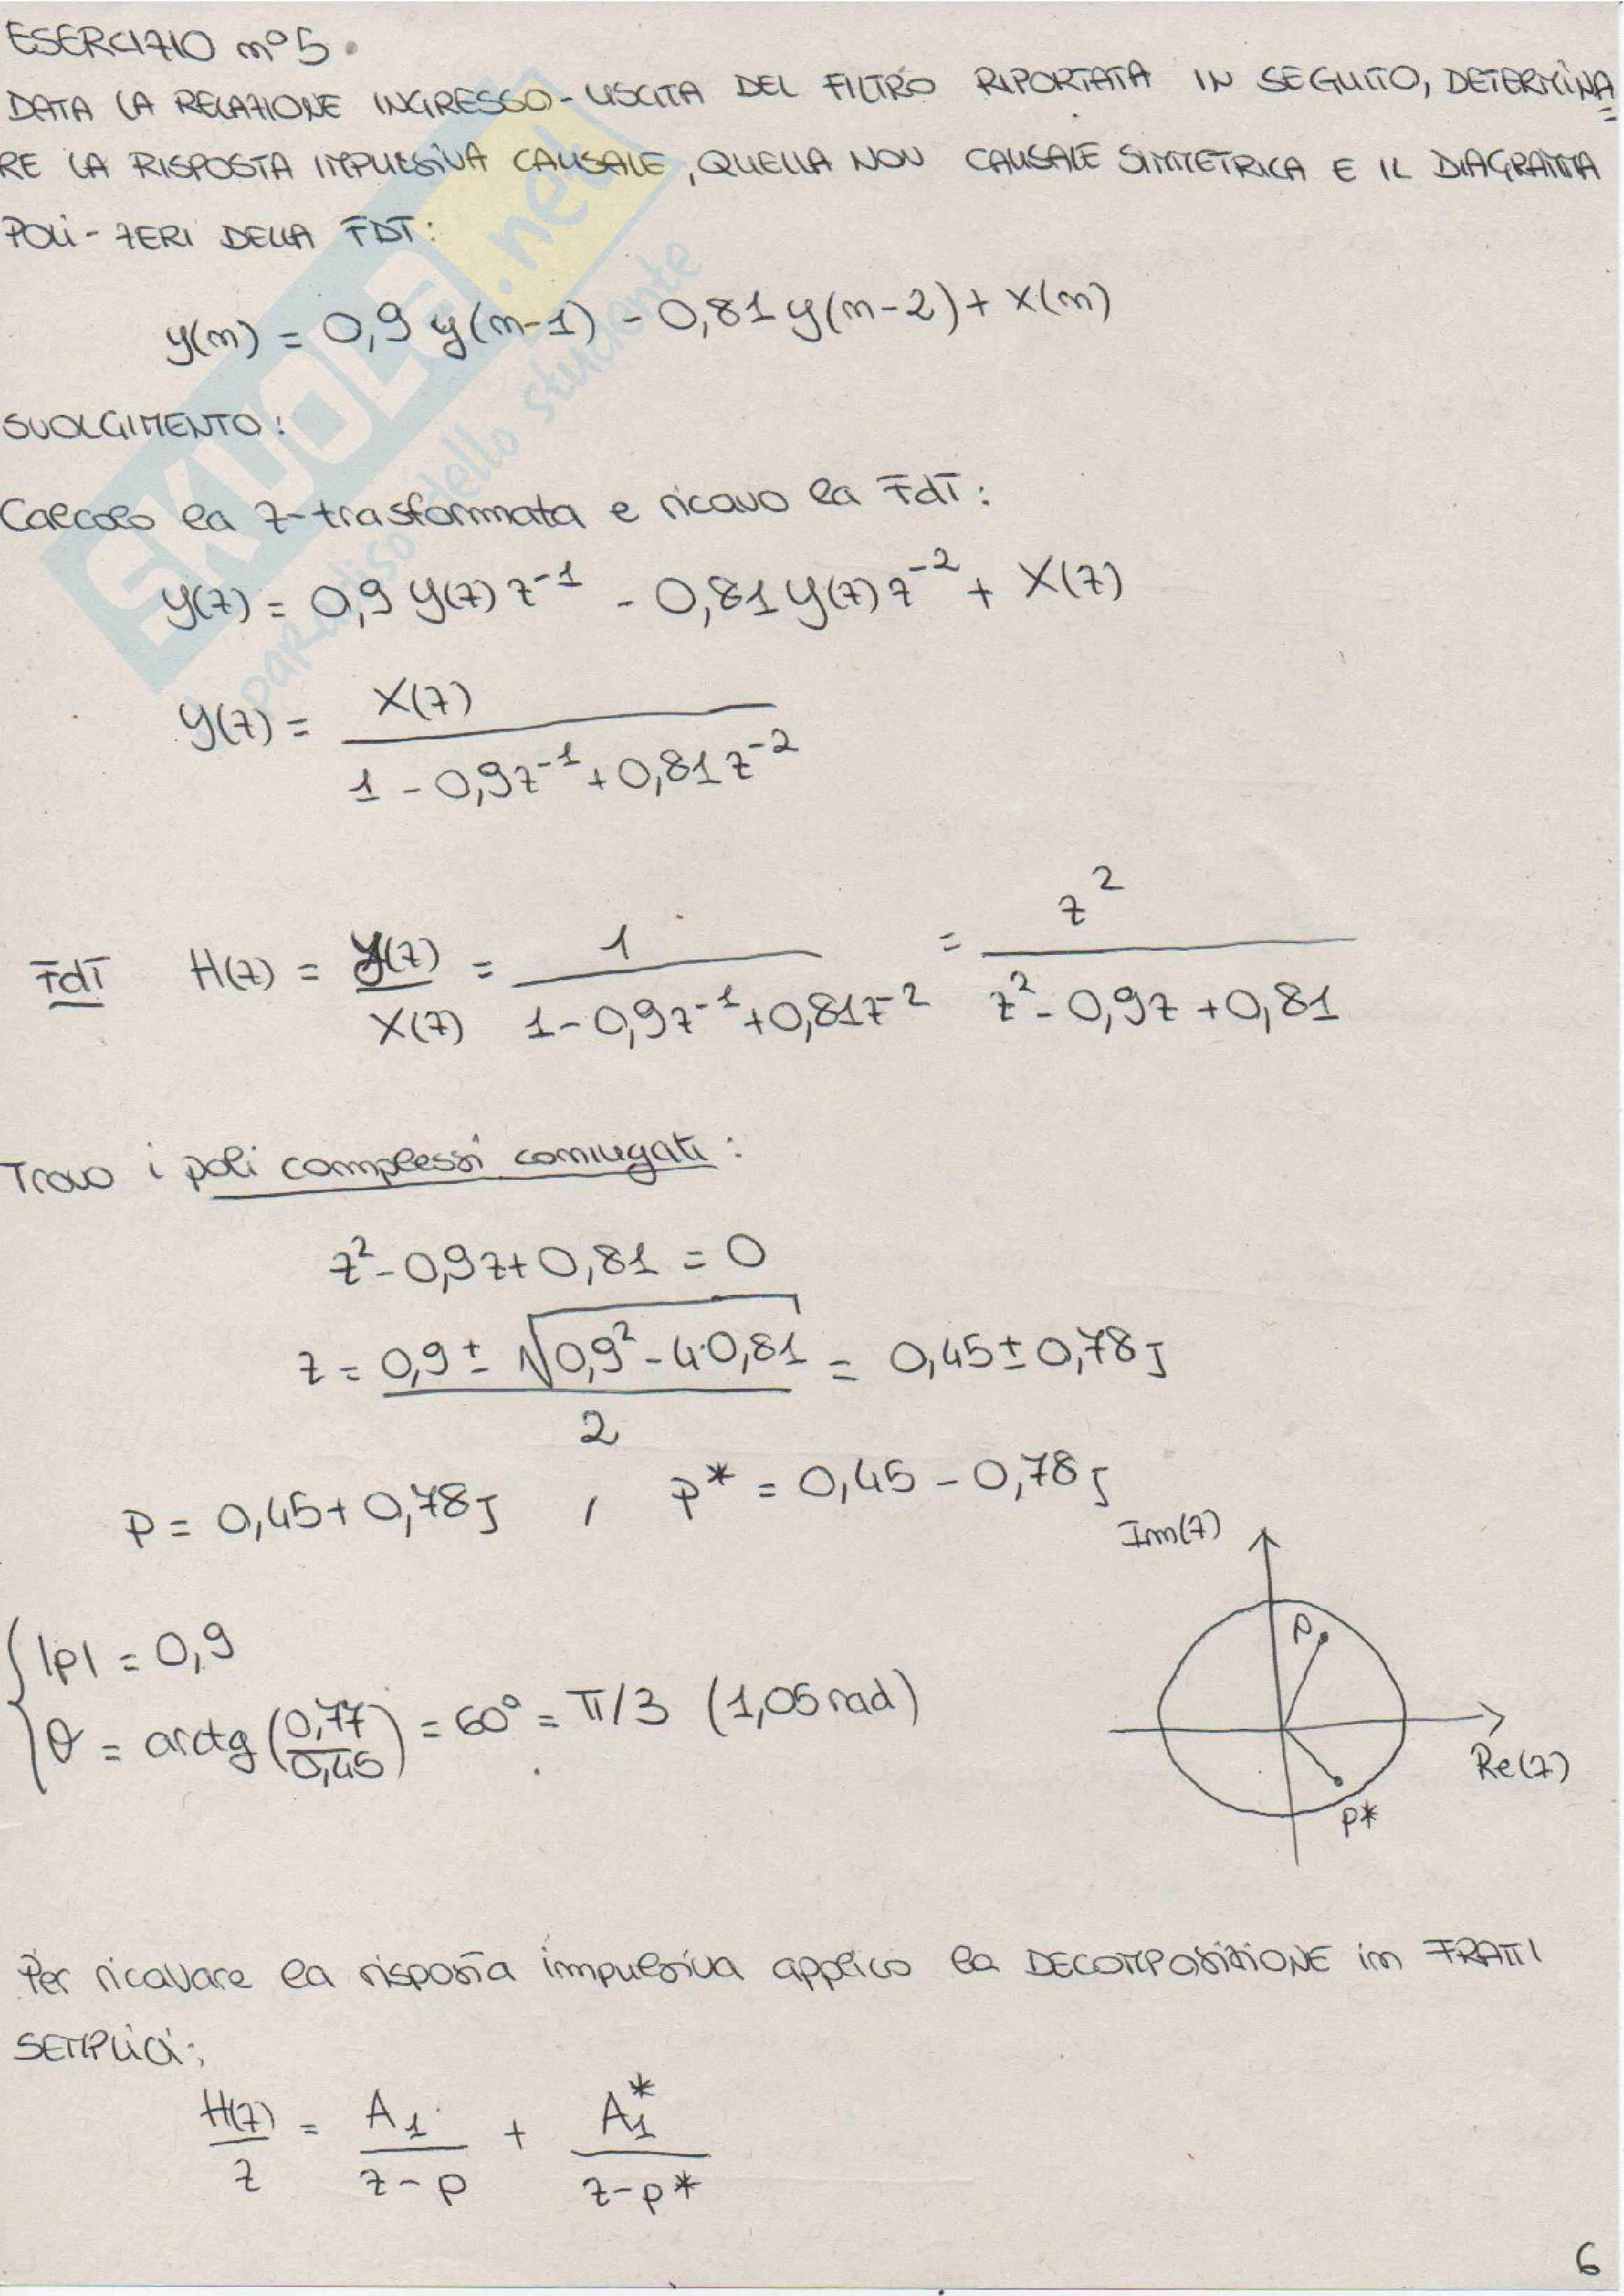 ESERCIZIO n°5.
DATA LA RELAZIONE INGRESSO-USCITA DEL FILTRO RIPORTATA IN SEGUITO, DETERMINA
RE LA RISPOSTA IMPULSIVA CAUSALE, QUELLA NON CAUSALE SIMMETRICA E IL DIAGRAMMA
POLI-ZERI DELLA FDT:
y(n) = 0,9 y(n-1) - 0,81 y(n-2) + x(n)
SVOLGIMENTO:
Calcolo la z-trasformata e ricavo la FdT:
Y(z) = 0,9 Y(z) z^-1 - 0,81 Y(z) z^-2 + X(z)
Y(z) = X(z) / (1 - 0,9z^-1 + 0,81z^-2)
FdT H(z) = Y(z)/X(z) = 1 / (1 - 0,9z^-1 + 0,81z^-2) = z^2 / (z^2 - 0,9z + 0,81)
Trovo i poli complessi coniugati:
z^2 - 0,9z + 0,81 = 0
z = (0,9 ± √(0,9^2 - 4·0,81)) / 2 = 0,45 ± 0,78j
P = 0,45 + 0,78j , P* = 0,45 - 0,78j
Im(z)
P
Re(z)
P*
|p| = 0,9
θ = arctg(0,77/0,45) = 60° = π/3 (1,05 rad)
Per ricavare la risposta impulsiva applico la DECOMPOSIZIONE in FRATTI
SEMPLICI:
H(z)/z = A1/(z-p) + A1*/(z-p*)
6
SKUOLA.net
paradiso dello studente